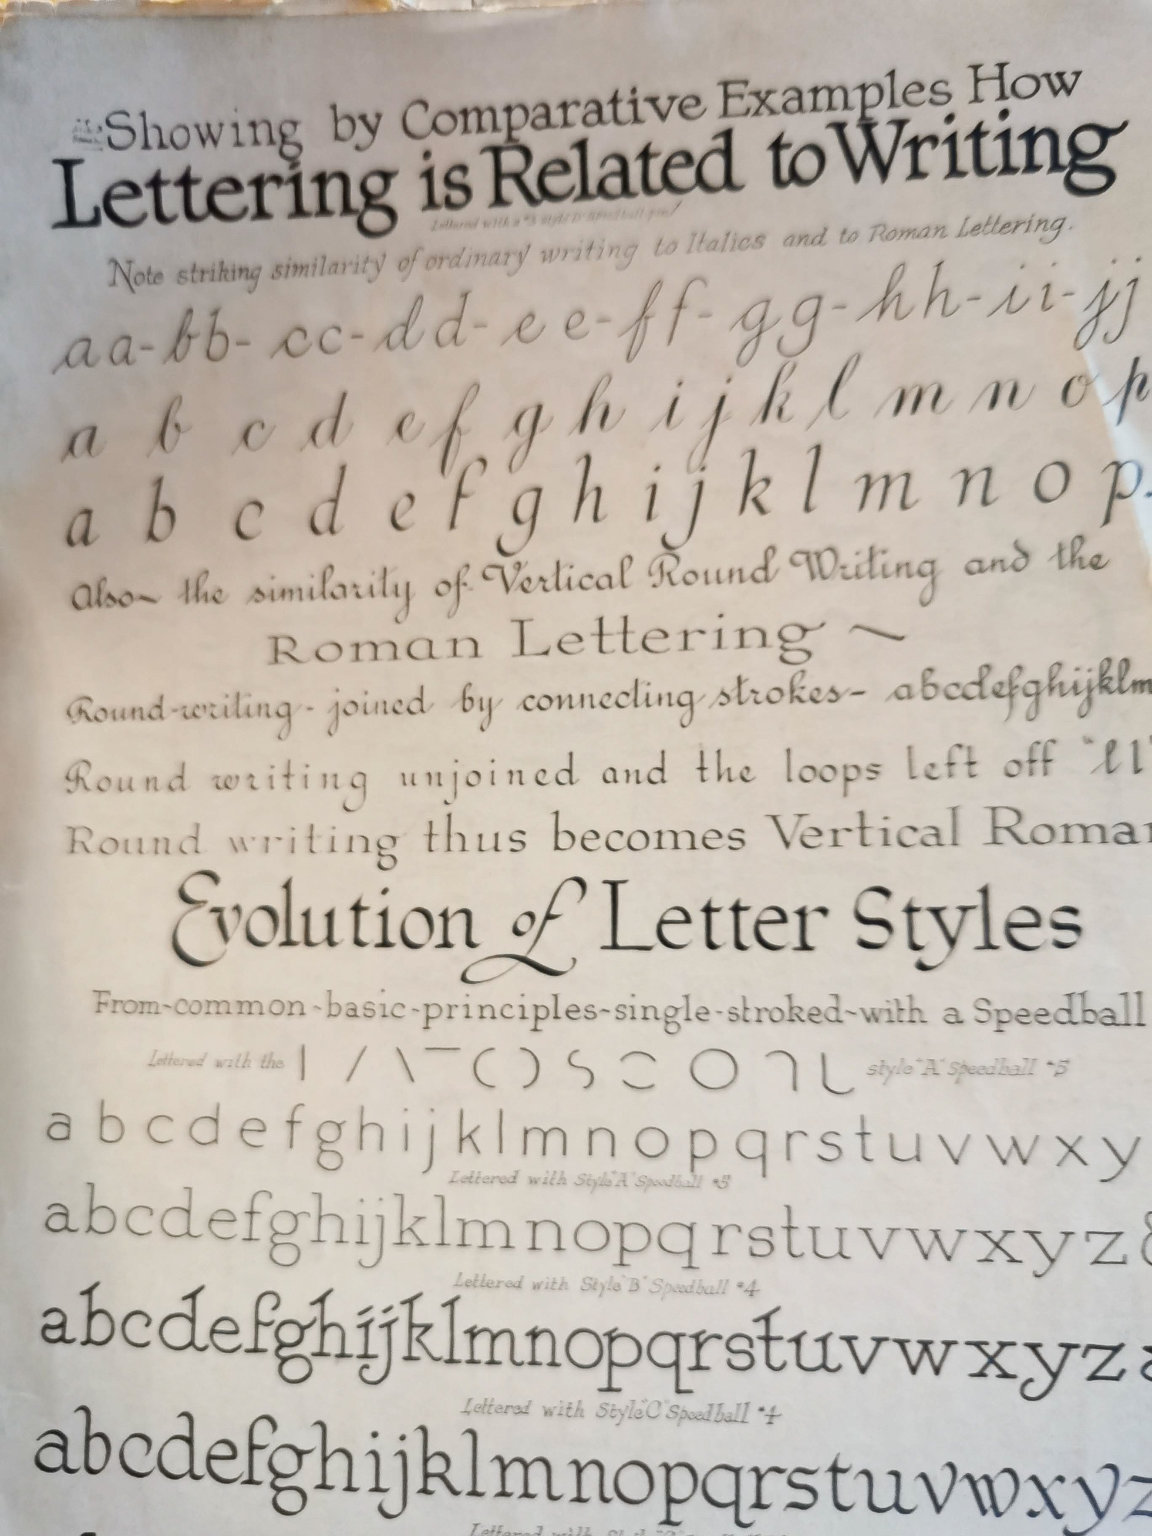 Showing by Comparative Examples How
Lettering is Related to Writing
Lettered with a #3 style D Speedball pen
Note striking similarity of ordinary writing to Italics and to Roman Lettering.
aa-bb-cc-dd-ee-ff-gg-hh-ii-jj
a b c d e f g h i j k l m n o p
a b c d e f g h i j k l m n o p
Also~ the similarity of Vertical Round Writing and the
Roman Lettering ~
Round-writing- joined by connecting strokes- abcdefghijklm
Round writing unjoined and the loops left off "ll"
Round writing thus becomes Vertical Roman
Evolution of Letter Styles
From-common-basic-principles-single-stroked-with a Speedball
Lettered with the style "A" Speedball #5
a b c d e f g h i j k l m n o p q r s t u v w x y
Lettered with Style "A" Speedball #5
abcdefghijklmnopqrstuvwxyz&
Lettered with Style "B" Speedball #4
abcdefghijklmnopqrstuvwxyz
Lettered with Style "C" Speedball #4
abcdefghijklmnopqrstuvwxyz
Lettered with